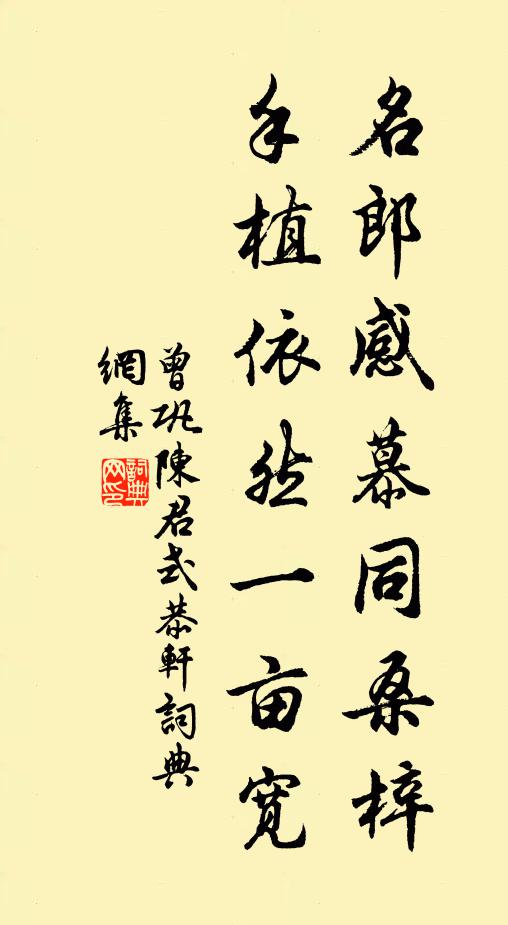 名郎感慕同桑梓
手植依然一亩寬
曾巩陳君式恭軒詞典
網集
詞典
网印